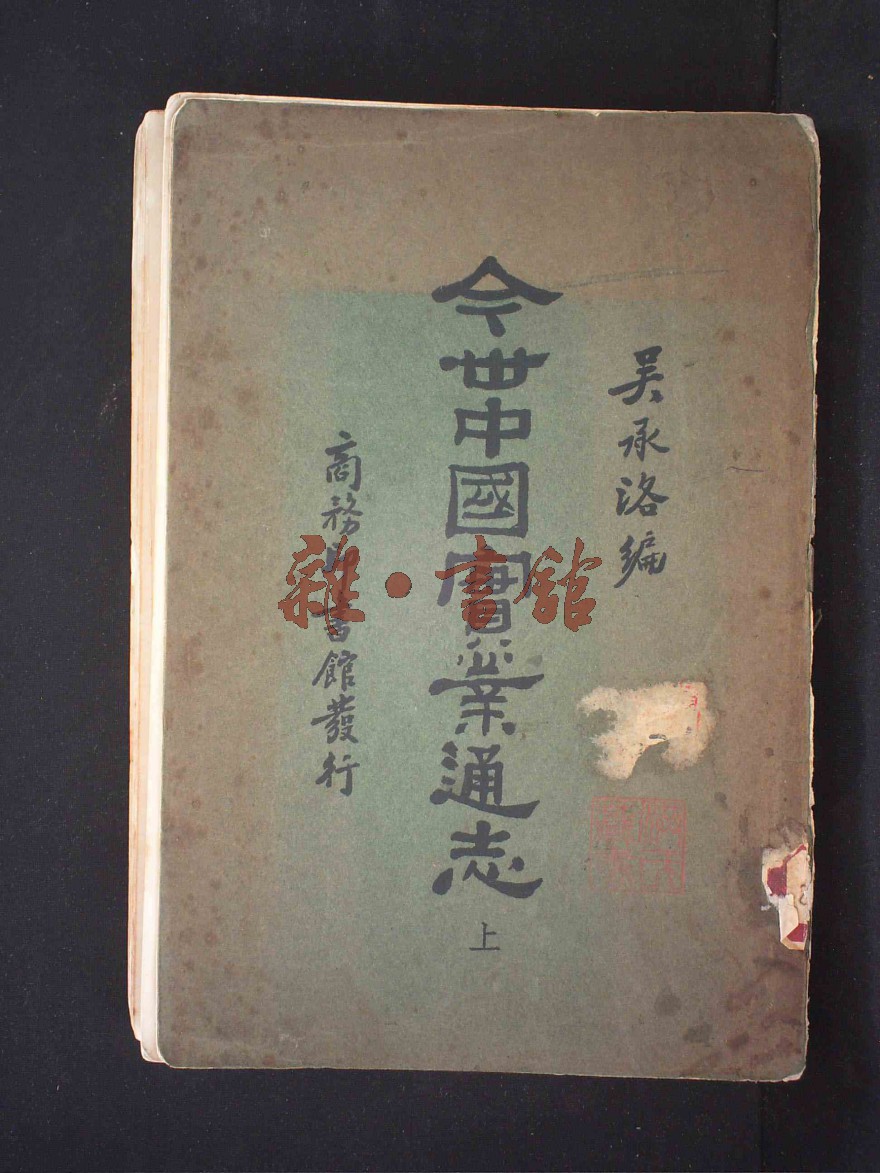 吴承洛編
今世中國實業通志
上
商務印書館發行
雜·書館